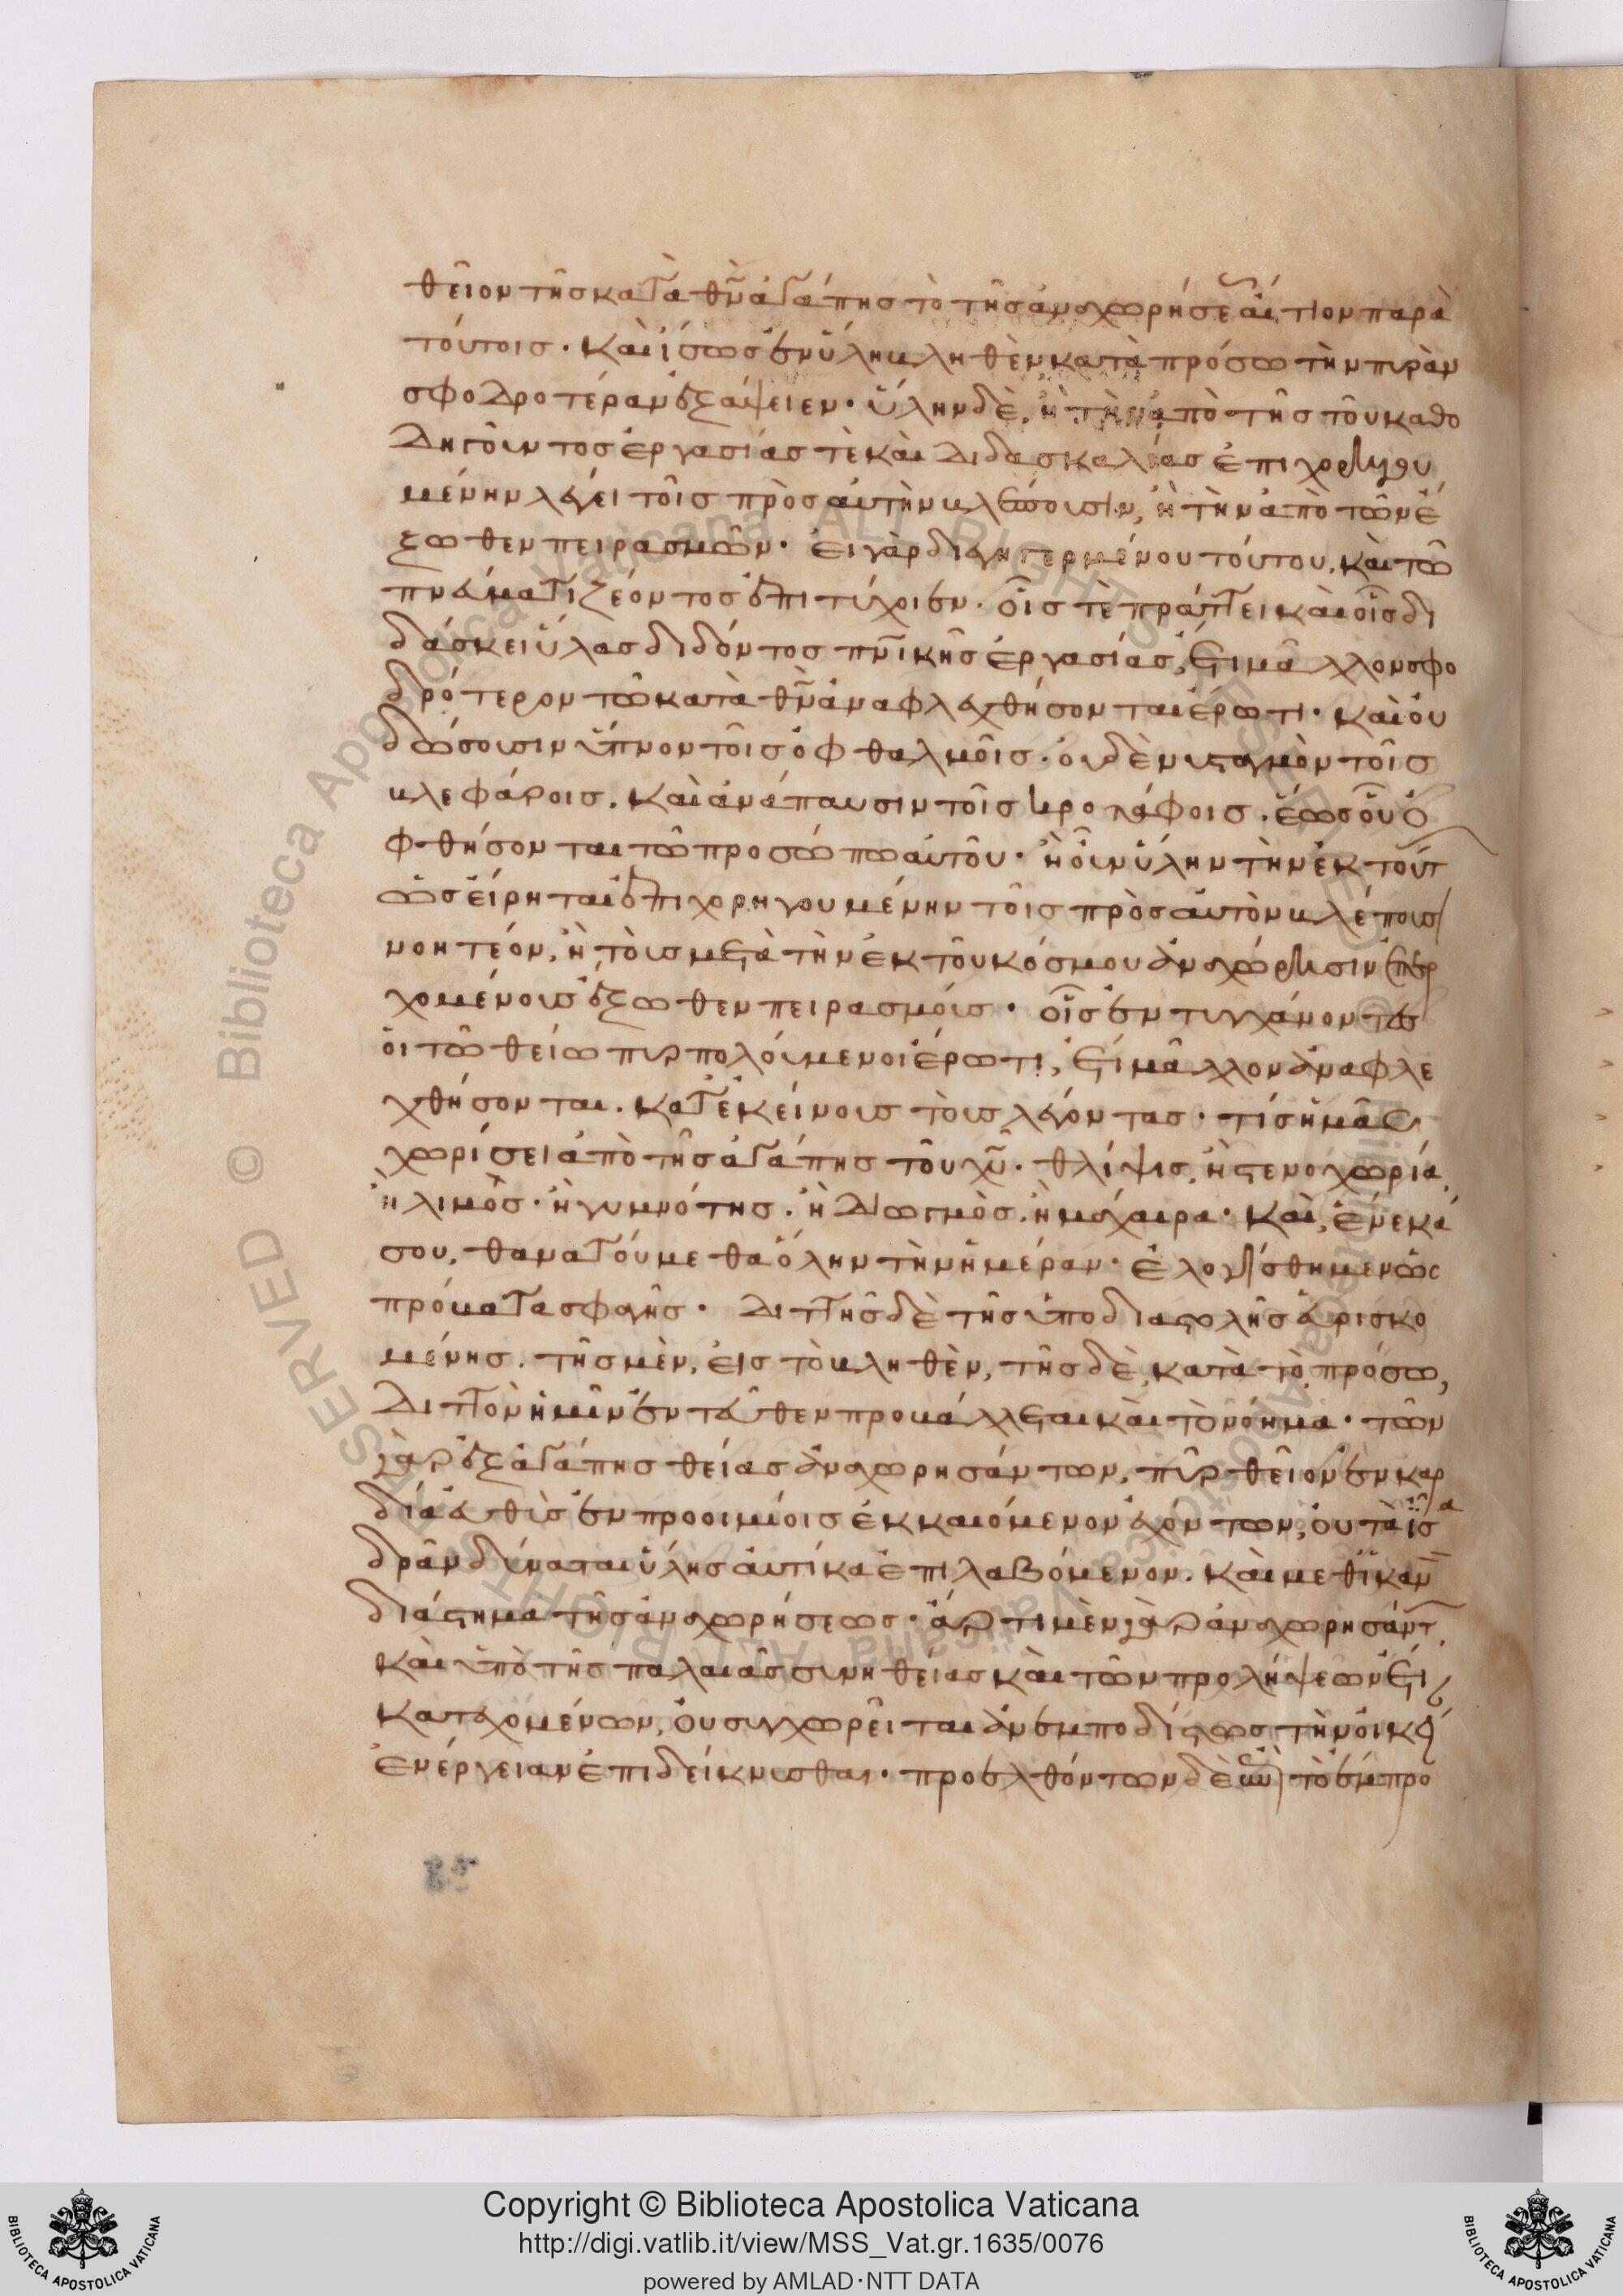 θεῖον τῆς κατὰ θν̄ ἀγάπης τὸ τῆς ἀναχωρήσε αἴτιον παρὰ
τούτοις· καὶ ἴσως ἐν ὕλη βληθὲν κατὰ πρόσω τὴν πυρὰν
σφοδροτέραν ἐξάψειεν· ὕλην δὲ, ἢ τὴν ἀπὸ τῆς τοῦ καθο
δηγοῦντος ἐργασίας τὲ καὶ διδασκαλίας ἐπιχορηγου
μένην λέγει τοῖς πρὸς αὐτὴν βλέπουσιν, ἢ τὴν ἀπὸ τῶν ἔ
ξωθεν πειρασμῶν· εἰ γὰρ διεγηγερμένου τούτου, καὶ τῶ
πνεύματι ζέοντος ἐπιτύχοιεν. οἷς τὲ πράττει καὶ οἷς δι
δάσκει ὕλας διδόντος πνικῆς ἐργασίας, ἔτι μᾶλλον σφο
δρότερον τῶ κατὰ θν̄ ἀναφλεχθήσονται ἔρωτι· καὶ οὐ
δώσουσιν ὕπνον τοῖς ὀφθαλμοῖς. οὐδὲ νυσταγμὸν τοῖς
βλεφάροις. καὶ ἀνάπαυσιν τοῖς κροτάφοις. ἕως οὗ ὀ
φθήσονται τῶ προσώπω αὐτοῦ· ἢ οὖν ὕλην τὴν ἐκ τούτ
ὡς εἴρηται ἐπιχορηγουμένην τοῖς πρὸς αὐτὸν βλέπουσι
νοητέον, ἢ τοὺς μετὰ τὴν ἐκ τοῦ κόσμου ἀναχώρησιν ἐπερ
χομένους ἔξωθεν πειρασμούς· οἷς ἐντυγχάνοντες
οἱ τῶ θείω πυρπολούμενοι ἔρωτι, ἔτι μᾶλλον ἀναφλε
χθήσονται. κατ' ἐκείνους τοὺς λέγοντας· τίς ἡμᾶς
χωρίσει ἀπὸ τῆς ἀγάπης τοῦ χῡ· θλίψις, ἢ στενοχωρία,
ἢ λιμὸς· ἢ γυμνότης. ἢ διωγμὸς. ἢ μάχαιρα· καὶ, ἕνεκά
σου, θανατούμεθα ὅλην τὴν ἡμέραν· ἐλογίσθημεν ὡς
πρόβατα σφαγῆς· διττῆς δὲ τῆς ὑποδιαστολῆς εὑρισκο
μένης. τῆς μὲν, εἰς τὸ βληθὲν, τῆς δὲ, κατὰ τὸ πρόσω,
διττὸν ἡμῖν ἐντεῦθεν προβάλλεται καὶ τὸ νόημα· τῶν
γὰρ ἐξ ἀγάπης θείας ἀναχωρησάντων, πῦρ θεῖον ἐν καρ
δία εὐθὺς ἐν προοιμίοις ἐκκαιόμενον ἐχόντων, οὐ τὰ ἴσα
δρᾶν δύναται ὕλης αὐτίκα ἐπιλαβόμενον. καὶ μεθ' ἱκανν̄
διάστημα τῆς ἀναχωρήσεως· ἄρτι μὲν γὰρ ἀναχωρησάντ
καὶ ὑπὸ τῆς παλαιᾶς συνηθείας καὶ τῶν προλήψεων ἔτι
κατεχομένων, οὐ συγχωρεῖται ἀνεμποδίστως τὴν οἰκεί
ἐνέργειαν ἐπιδείκνυσθαι· προελθόντων δὲ τὸ ἔμπρο